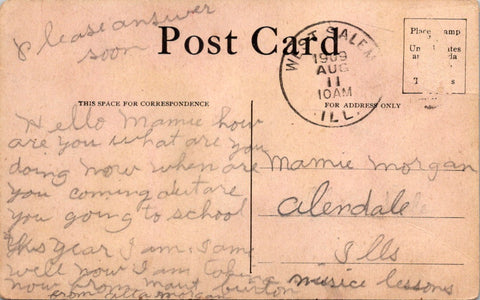 Please answer
soon
Post Card
WEST SALEM
1909
AUG
11
10AM
ILL.
Place
THIS SPACE FOR CORRESPONDENCE
FOR ADDRESS ONLY
Hello Mamie how
are you what are you
doing now when are
you coming out are
you going to school
this year I am. I am
well now I am taking music lessons
now from maud burton
from alta morgan
Mamie Morgan
Alendale
Ills